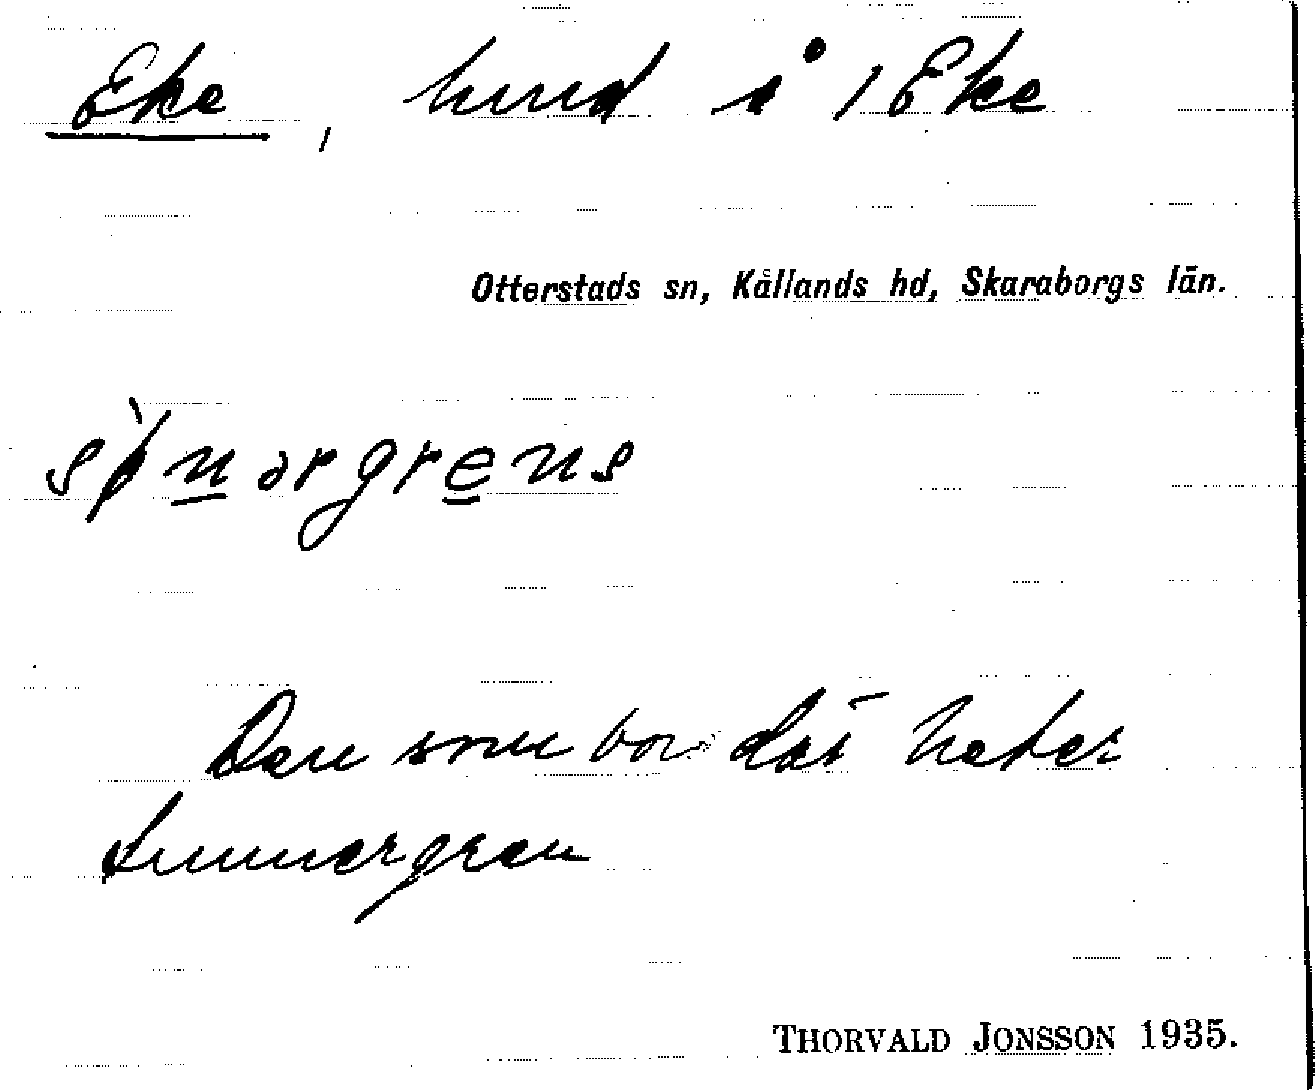 Eke, hmd å 1 Eke
Otterstads sn, Kållands hd, Skaraborgs län.
sø̀nərgrens
Den som bor där heter
THORVALD JONSSON 1935.